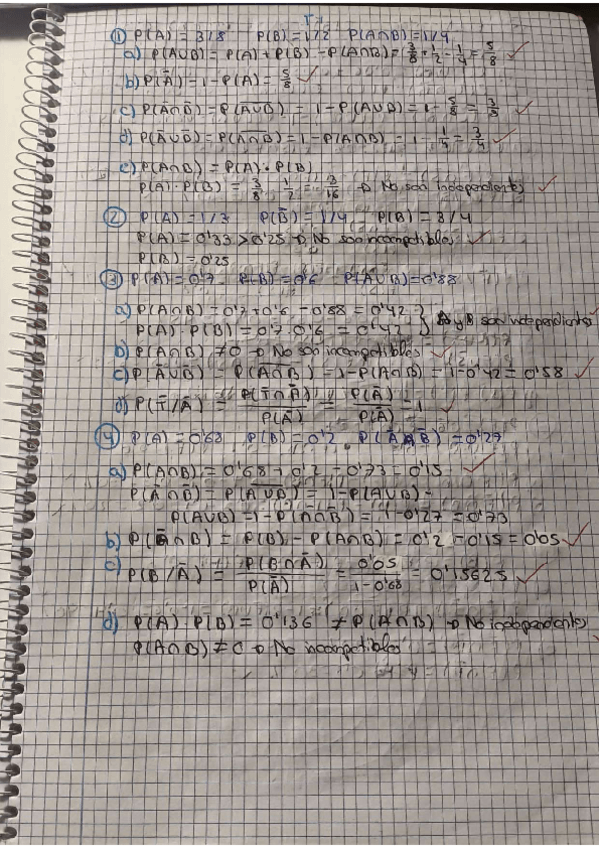 T7
① P(A) = 3/8 P(B) = 1/2 P(A∩B) = 1/4
a) P(A∪B) = P(A) + P(B) - P(A∩B) = 3/8 + 1/2 - 1/4 = 5/8 ✓
b) P(Ā) = 1 - P(A) = 5/8 ✓
c) P(Ā∩B̄) = P(A̅∪̅B̅) = 1 - P(A∪B) = 1 - 5/8 = 3/8 ✓
d) P(Ā∪B̄) = P(A̅∩̅B̅) = 1 - P(A∩B) = 1 - 1/4 = 3/4 ✓
e) P(A∩B) = P(A) · P(B)
P(A) · P(B) = 3/8 · 1/2 = 3/16 → No son independientes ✓
② P(A) = 1/3 P(B̄) = 1/4 P(B) = 3/4
P(A) = 0'33 > 0'25 → No son incompatibles ✓
P(B) = 0'25
③ P(A) = 0'7 P(B) = 0'6 P(A∪B) = 0'88
a) P(A∩B) = 0'7 + 0'6 - 0'88 = 0'42 } A y B son independientes
P(A) · P(B) = 0'7 · 0'6 = 0'42 }
b) P(A∩B) ≠ 0 → No son incompatibles ✓
c) P(Ā∪B̄) = P(A̅∩̅B̅) = 1 - P(A∩B) = 1 - 0'42 = 0'58 ✓
d) P(B̄/Ā) = P(B̄∩Ā)/P(Ā) = P(Ā)/P(Ā) = 1 ✓
④ P(A) = 0'68 P(B) = 0'2 P(Ā∩B̄) = 0'27
a) P(A∩B) = 0'68 + 0'2 - 0'73 = 0'15 ✓
P(Ā∩B̄) = P(A̅∪̅B̅) = 1 - P(A∪B) -
P(A∪B) = 1 - P(Ā∩B̄) = 1 - 0'27 = 0'73
b) P(Ā∩B) = P(B) - P(A∩B) = 0'2 - 0'15 = 0'05 ✓
c) P(B/Ā) = P(B∩Ā)/P(Ā) = 0'05/1-0'68 = 0'15625 ✓
d) P(A) · P(B) = 0'136 ≠ P(A∩B) → No independientes
P(A∩B) ≠ 0 → No incompatibles